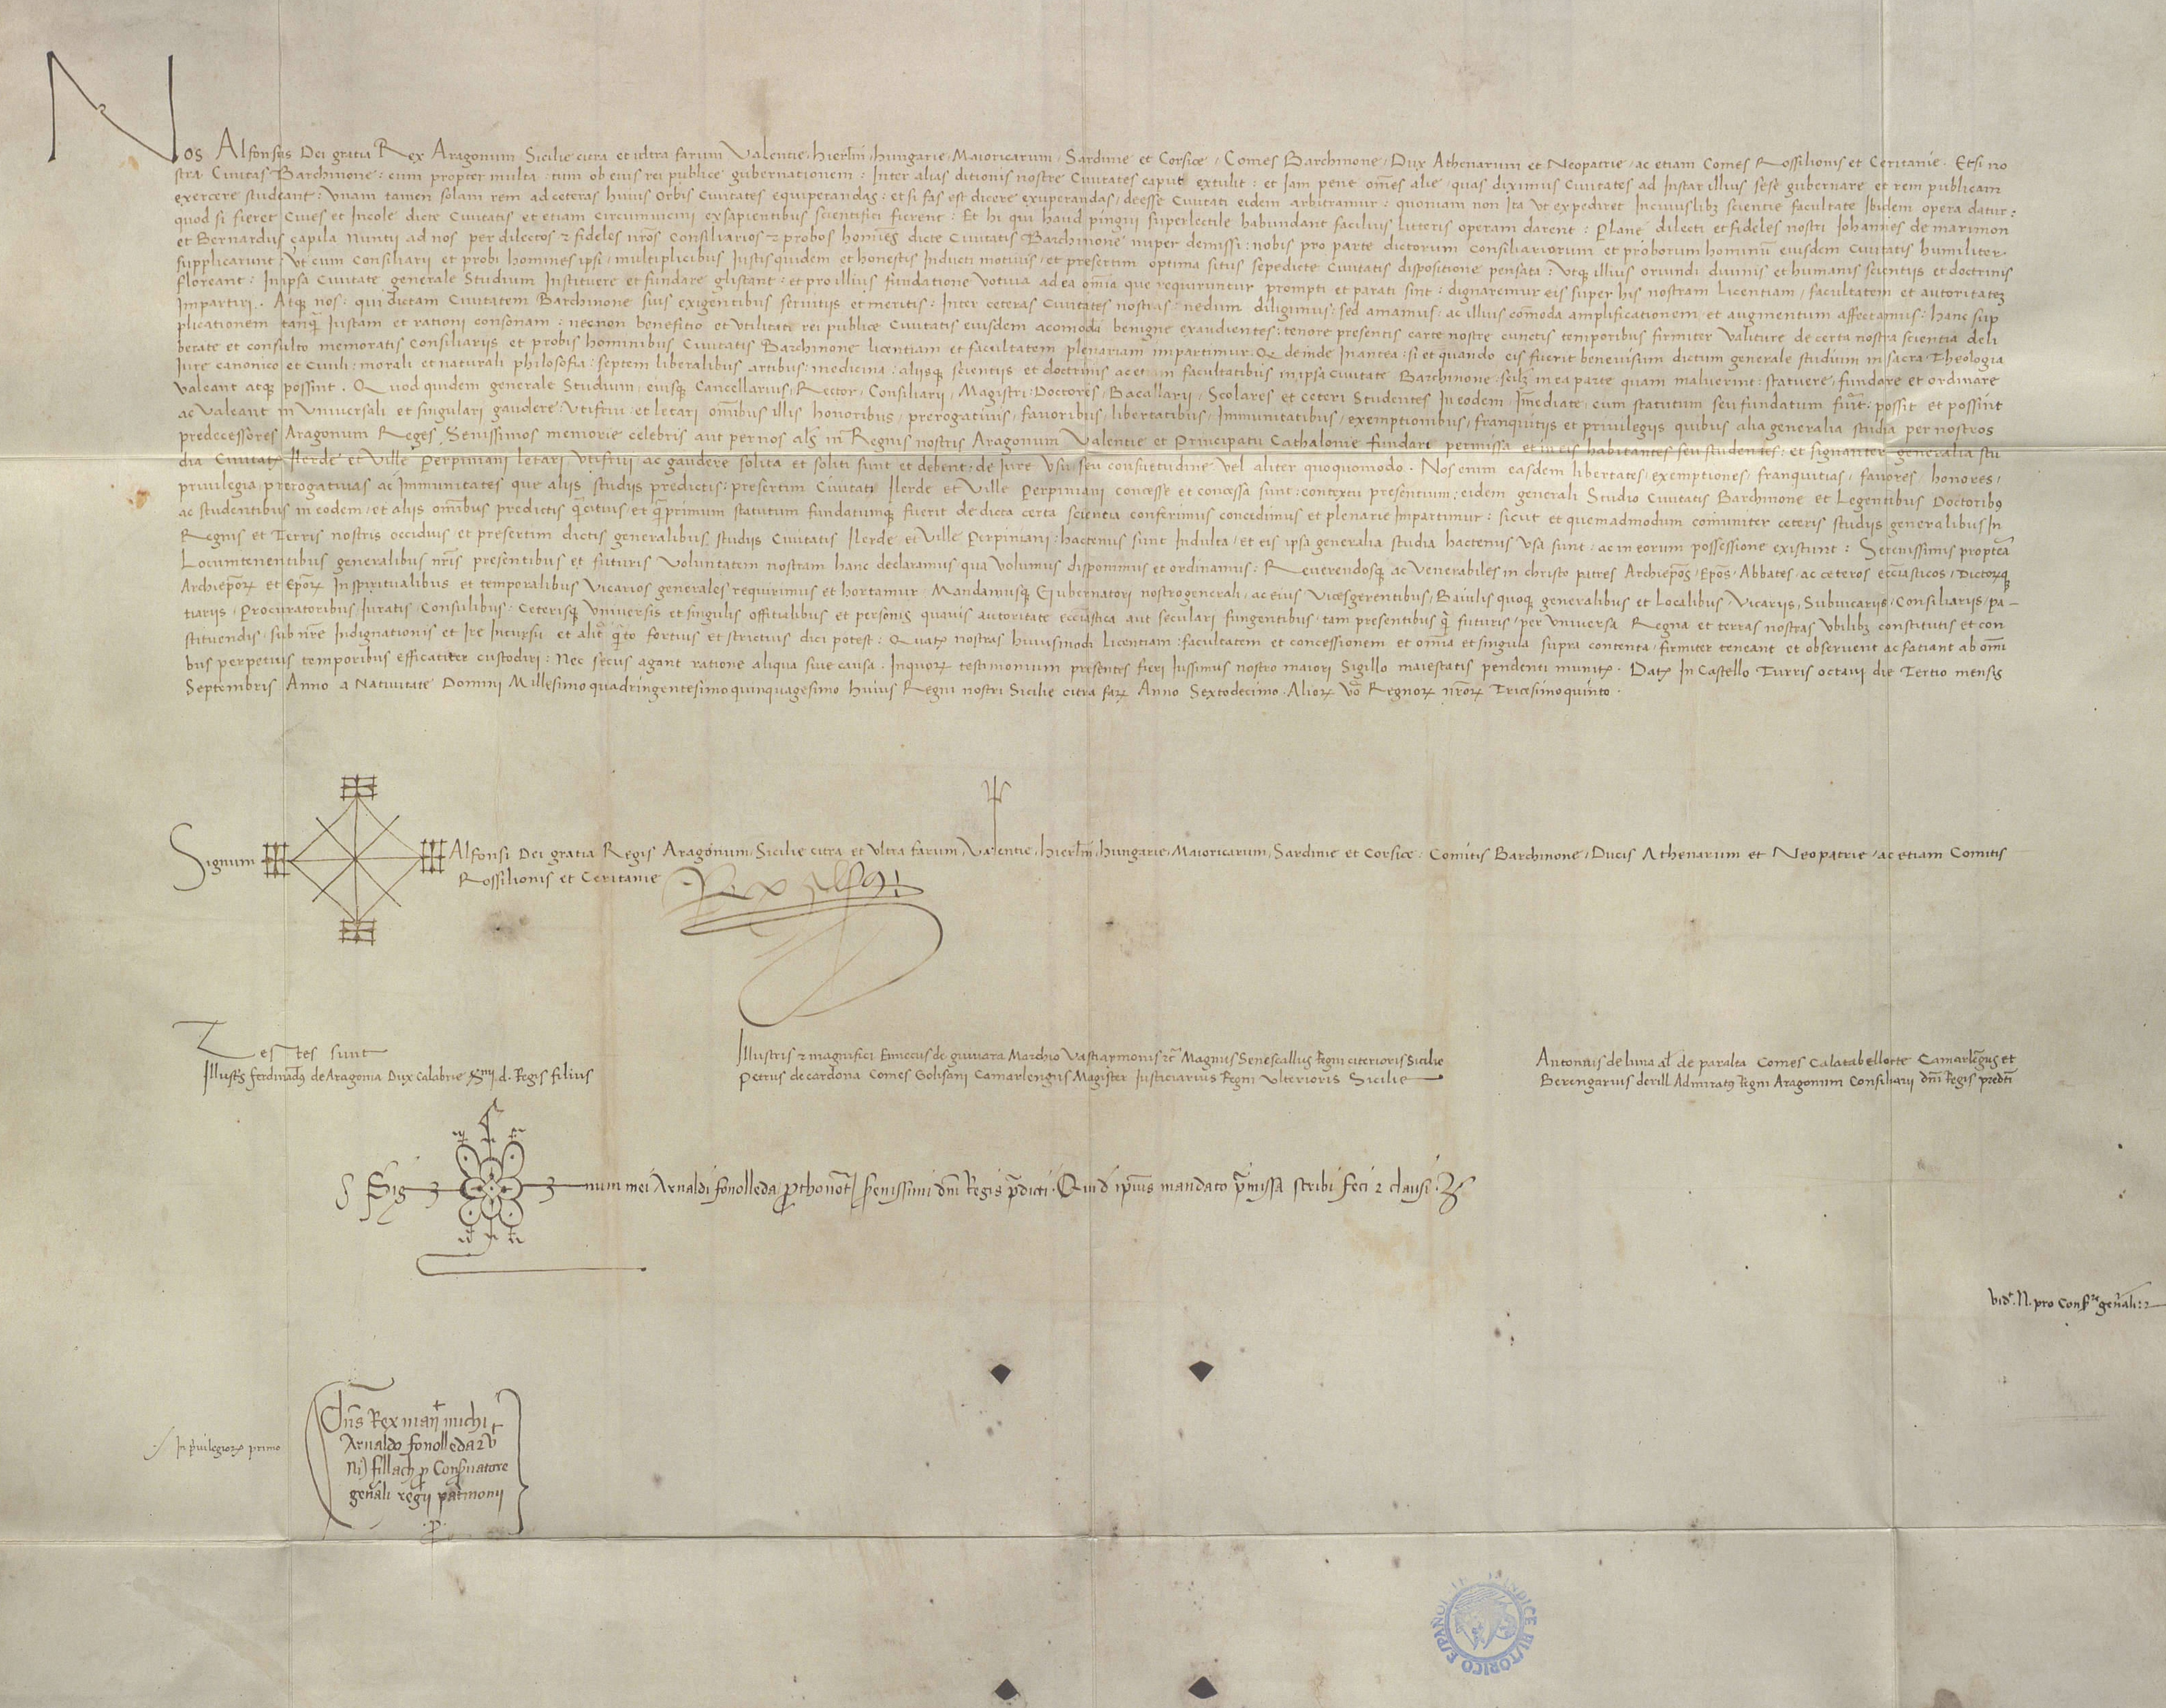 Nos Alfonsus Dei gratia Rex Aragonum Sicilie citra et ultra farum Valentie, Hierlm̄, Hungarie, Maioricarum, Sardinie et Corsice, Comes Barchinone, Dux Athenarum et Neopatrie, ac etiam Comes Rossilionis et Ceritanie. Etsi no
stra Civitas Barchinone: cum propter multa: tum ob eius rei publice gubernationem: Inter alias ditionis nostre Civitates caput extulit: et Jam pene om̄es alie, quas diximus Civitates ad Instar illius sese gubernare et rem publicam
exercere studeant: Unam tamen solam rem ad ceteras huius Orbis Civitates equiperandas: et si fas est dicere exuperandas, deesse Civitati eidem arbitramur: quoniam non Ita ut expediret Incuiuslibz scientie facultate Ibidem opera datur:
quod si fieret Cives et Incole dicte Civitatis et etiam circumuicini exsapientibus scientifici fierent: Et hi qui haud pingui superlectile habundant facilius litteris operam darent: Plane dilecti et fideles nostri Iohannes de marimon
et Bernardus çapila Nuntii ad nos per dilectos ⁊ fideles nr̄os Consiliarios ⁊ probos homines dicte Civitatis Barchinone nuper demissi: nobis pro parte dictorum Consiliariorum et proborum hominū eiusdem Civitatis humiliter
supplicarunt, Ut cum Consiliarii et probi homines ipsi, multiplicibus Justis quidem et honestis Inducti motivis, et presertim optima situs sepedicte Civitatis dispositione pensata: utqȝ illius oriundi divinis et humanis scientiis et doctrinis
floreant: Inipsa Civitate generale Studium Instituere et fundare glistant: et pro illius fundatione Votiva ad ea om̄ia que requiruntur prompti et parati sint: dignaremur eis super his nostram licentiam, facultatem et autoritatez
Impartiri. Atqȝ nos: qui dictam Civitatem Barchinone suis exigentibus servitiis et meritis: Inter ceteras Civitates nostras, nedum diligimus: sed amamus, ac illius comoda amplificationem et augmentum affectamus: hanc sup
plicationem tanq̄ Iustam et rationi consonam: necnon benefitio et utilitati rei publice Civitatis eiusdem acomodā benigne exaudientes: tenore presentis carte nostre cunctis temporibus firmiter valiture de certa nostra scientia deli
berate et consulto memoratis Consiliariis et probis hominibus Civitatis Barchinone licentiam et facultatem plenariam impartimur. Q̄ deinde Inantea: si et quando eis fuerit benevisum dictum generale studium in sacra Theologia
Iure canonico et Civili: morali et naturali philosofia: septem liberalibus artibus: medicina: aliisqȝ scientiis et doctrinis ac etiam facultatibus inipsa Civitate Barchinone scilz in ea parte quam maluerint: statuere, fundare et ordinare
valeant atqȝ possint. Quod quidem generale Studium, eiusqȝ Cancellarius, Rector, Consiliarii, Magistri: Doctores, Bacallarii, Scolares et ceteri Studentes In eodem, Im̄ediate, cum statutum seu fundatum fuerit: possit et possint
ac valeant in Universali et singulari gaudere: Utifrui: et letari om̄ibus illis honoribus, prerogativis, favoribus, libertatibus, Immunitatibus, exemptionibus, franquitiis et privilegiis quibus alia generalia studia per nostros
predecessores Aragonum Reges Serenissimos memorie celebris aut per nos al̄s in Regnis nostris Aragonum Valentie et Principatu Cathalonie fundari permissa et in eis habitantes seu studentes: et signanter generalia stu
dia Civitatꝭ Ilerde et Ville Perpiniani letari Utifrui ac gaudere solita et soliti sunt et debent: de Iure Usu seu consuetudine vel aliter quoquomodo. Nos enim easdem libertates, exemptiones, franquitias, favores, honores,
privilegia, prerogativas ac Immunitates que aliis studiis predictis: presertim Civitati Ilerde et Ville Perpiniani concesse et concessa sunt: contextu presentium: eidem generali Studio Civitatis Barchinone et Legentibus Doctoribȝ
ac studentibus in eodem, et aliis om̄ibus predictis q̄citius, et q̄primum statutum fundatumqȝ fuerit de dicta certa scientia conferimus concedimus et plenarie Impartimur: sicut et quemadmodum comuniter ceteris studiis generalibus In
Regnis et Terris nostris occiduis et presertim dictis generalibus studiis Civitatis Ilerde et Ville Perpiniani: hactenus sunt Indulta, et eis ipsa generalia studia hactenus usa sunt: ac in eorum possessione existunt: Serenissimis propteā
Locumtenentibus generalibus nr̄is presentibus et futuris Voluntatem nostram hanc declaramus qua volumus disponimus et ordinamus: Reverendosqȝ ac Venerabiles in christo patres Archiep̄os, Ep̄os, Abbates, ac ceteros eccl̄iasticos, Dictorꝝqȝ
Archiep̄orꝝ et Ep̄orꝝ In spiritualibus et temporalibus Vicarios generales requirimus et hortamur, Mandamusqȝ Gubernatori nostro generali, ac eius Vicesgerentibus, Baiulis quoqȝ generalibus et localibus, Vicariis, Subvicariis, Consiliariis, pa-
tiariis, Procuratoribus, Iuratis, Consulibus, Ceterisqȝ Universis et singulis offitialibus et personis quavis autoritate eccl̄iastica aut seculari fungentibus, tam presentibus q̄ futuris, per universa Regna et terras nostras Ubilibz constitutis et con
stituendis, sub nr̄e Indignationis et Ire Incursu et alit̄ q̄to fortius et strictius dici potest: Quatꝰ nostras huiusmodi Licentiam: facultatem et concessionem et om̄ia et singula supra contenta, firmiter teneant et observent ac fatiant ab om̄i
bus perpetuis temporibus efficatiter custodiri: Nec secus agant ratione aliqua sive causa. Inquorꝝ testimonium presentes fieri Iussimus nostro maiori Sigillo maiestatis pendenti munitꝭ. Datꝭ In Castello Turris octavi die Tertio mensis
Septembris Anno a Nativitate Domini Millesimo quadringentesimo quinquagesimo huius Regni nostri Sicilie citra farꝝ Anno Sextodecimo. Aliorꝝ vō Regnorꝝ nr̄orꝝ Tricesimoquinto.
Signum Alfonsi Dei gratia Regis Aragonum, Sicilie citra et ultra farum, Valentie, Hierlm̄, Hungarie, Maioricarum, Sardinie et Corsice, Comitis Barchinone, Ducis Athenarum et Neopatrie, ac etiam Comitis
Rossilionis et Ceritanie
Rex Alfonsus
Testes sunt
Illustris ferdinādꝰ de Aragonia Dux Calabrie d. Regis filius
Illustris ⁊ magnifici Ennecus de guivara Marchio Vastiaymonis ⁊c̄ Magnus Senescallus Regni citerioris Sicilie
Petrus de cardona Comes Golisani Camarlengus Magister Iusticiarius Regni Ulterioris Sicilie
Antonius de luna al̄s de paralta Comes Calatabellocte Camarlēgus et
Berengarius derill Admiratꝰ Regni Aragonum Consiliarii dn̄i Regis predc̄i
Sig num mei Arnaldi fonolleda p̱thonot̄ Serenissimi dn̄i Regis p̄dicti. Qui d ip̄ius mandato p̄missa scribi feci ⁊ clausi.
Vidt. N. pro Conser gen̄ali:
In privilegiorꝝ primo
Dn̄s Rex man̄t michi
Arnaldo fonolleda ⁊ vt
fillach p Conservatore
gen̄ali regii patrimonii
.P.
INDICE HISTORICO ESPAÑOL